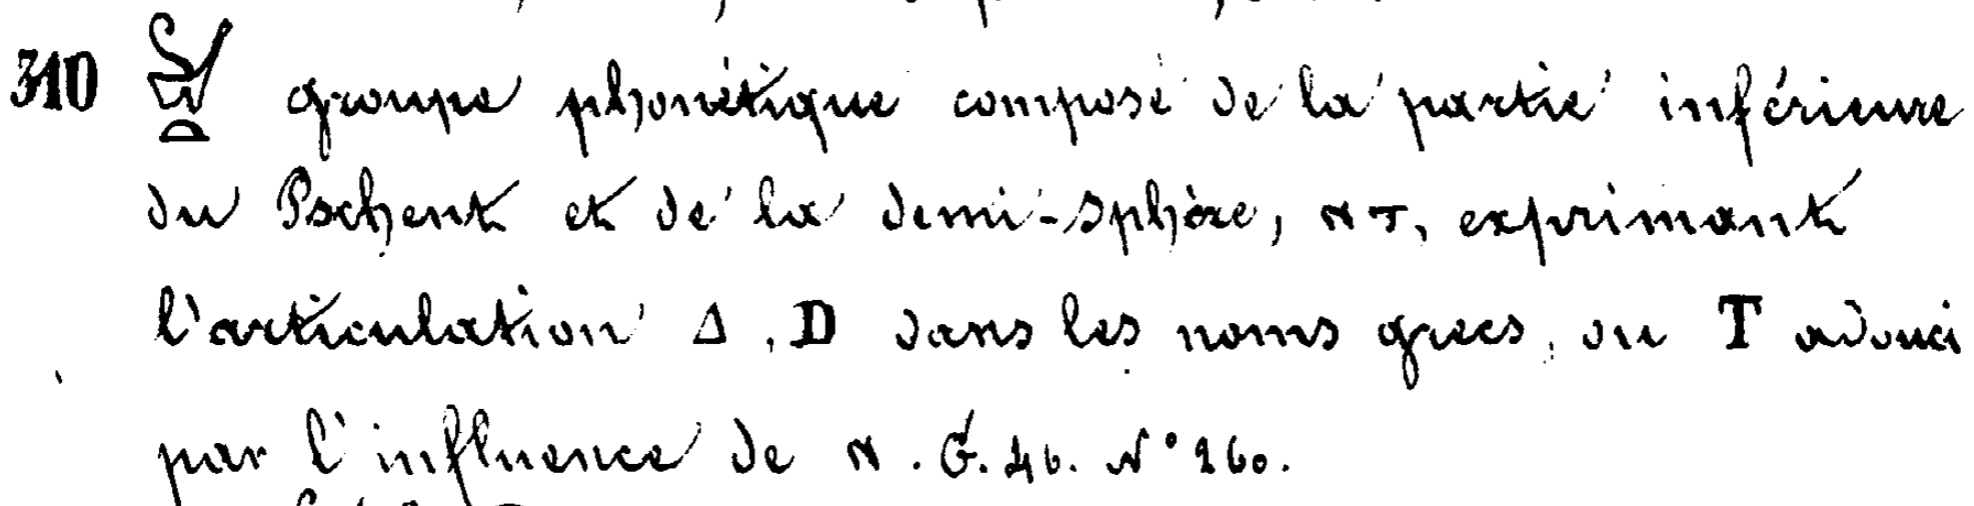 310 𓋔𓏏 groupe phonétique composé de la partie inférieure
du Pschent et de la demi-sphère, ⲛⲧ, exprimant
l'articulation Δ, D dans les noms grecs, ou T adouci
par l'influence de ⲛ. G. 46. N° 260.